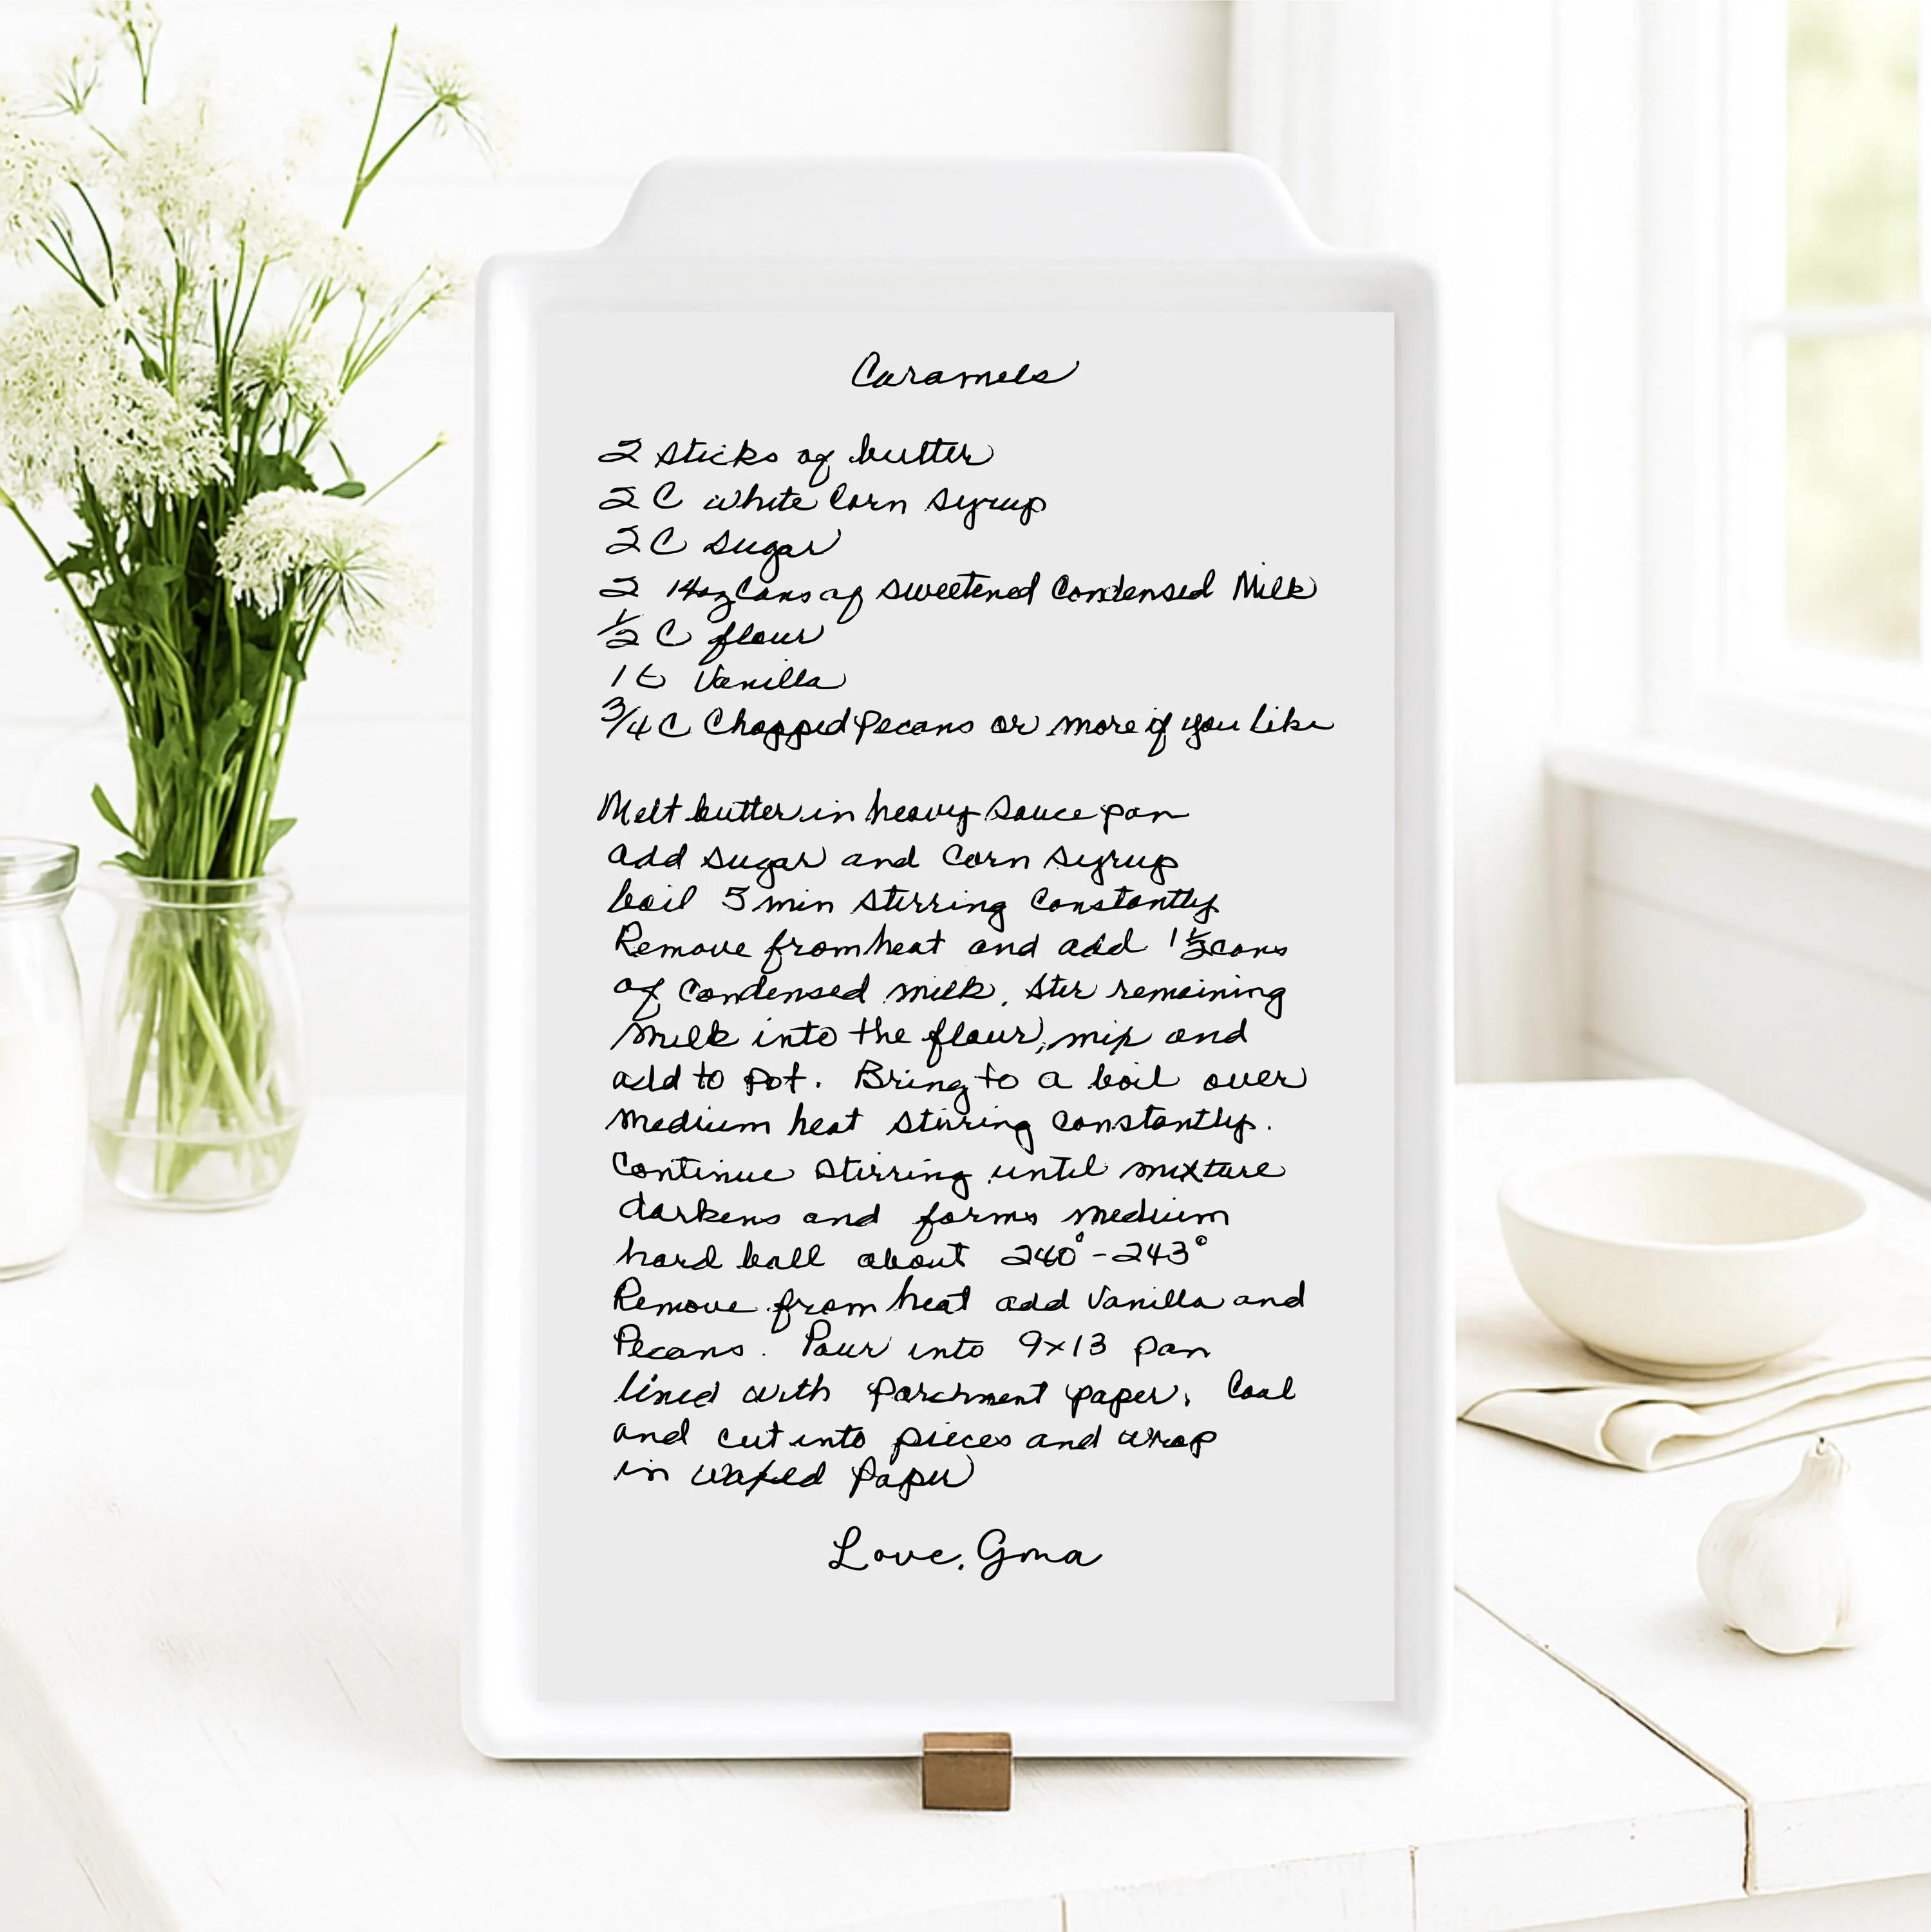 Caramels
2 sticks of butter
2 C white Corn syrup
2 C sugar
2 14oz Cans of sweetened Condensed Milk
1/2 C flour
1 t Vanilla
3/4 C Chopped Pecans or more if you like
Melt butter in heavy Sauce pan
add sugar and Corn syrup
boil 5 min stirring Constantly
Remove from heat and add 1 1/2 cans
of Condensed milk, stir remaining
milk into the flour, mix and
add to pot. Bring to a boil over
medium heat stirring Constantly.
Continue stirring until mixture
darkens and forms medium
hard ball about 240° - 243°
Remove from heat add Vanilla and
Pecans. Pour into 9x13 pan
lined with parchment paper. Cool
and cut into pieces and wrap
in waxed Paper
Love, Gma